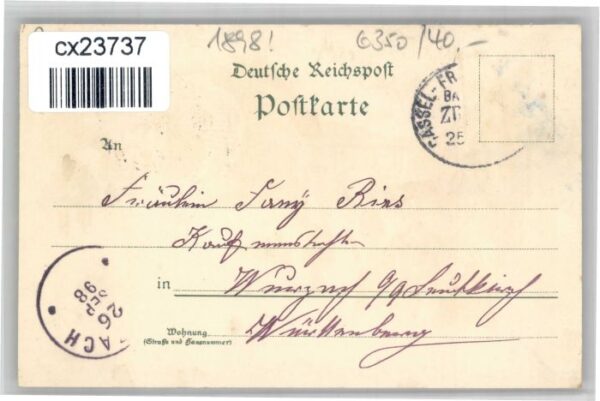 cx23737
1898!
6350/40.-
Deutsche Reichspost
Postkarte
CASSEL-FR
BA
ZU
25
An
Fräulein Fany Ries
Kaufmannstochter
in Wurzach o/g Leutkirch
Wohnung
(Straße und Hausnummer)
Württemberg
ACH
26
SEP
98